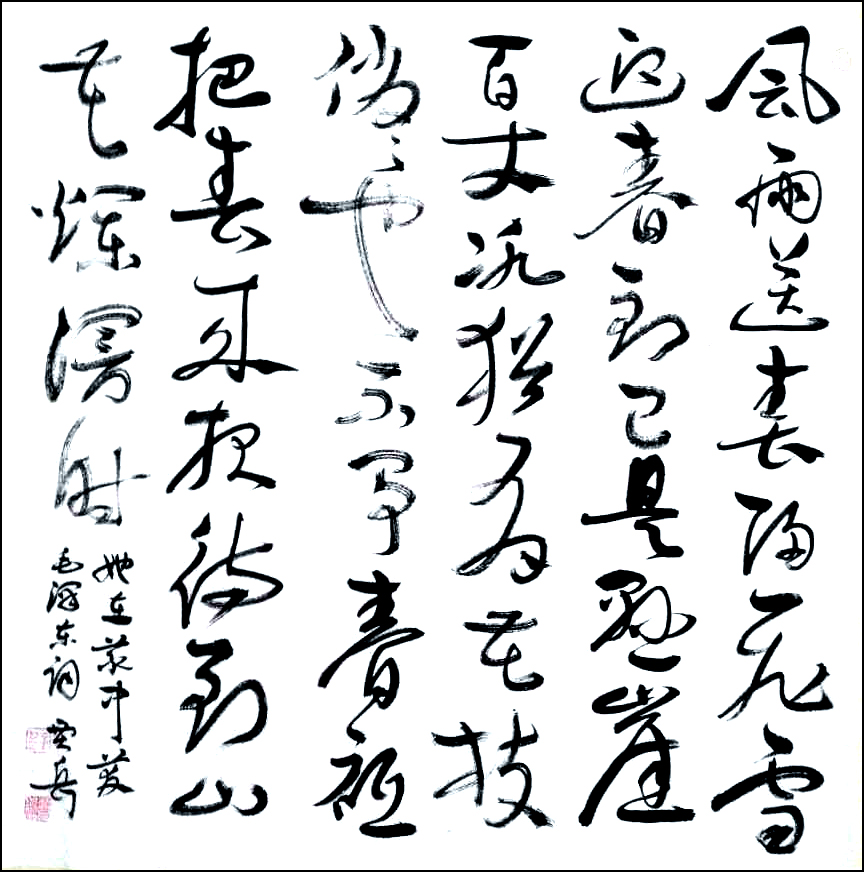 风雨送春归飞雪
迎春到已是悬崖
百丈冰犹有花枝
俏〻也不争春祇
把春来报待到山
花烂漫时
她在丛中笑
毛泽东词